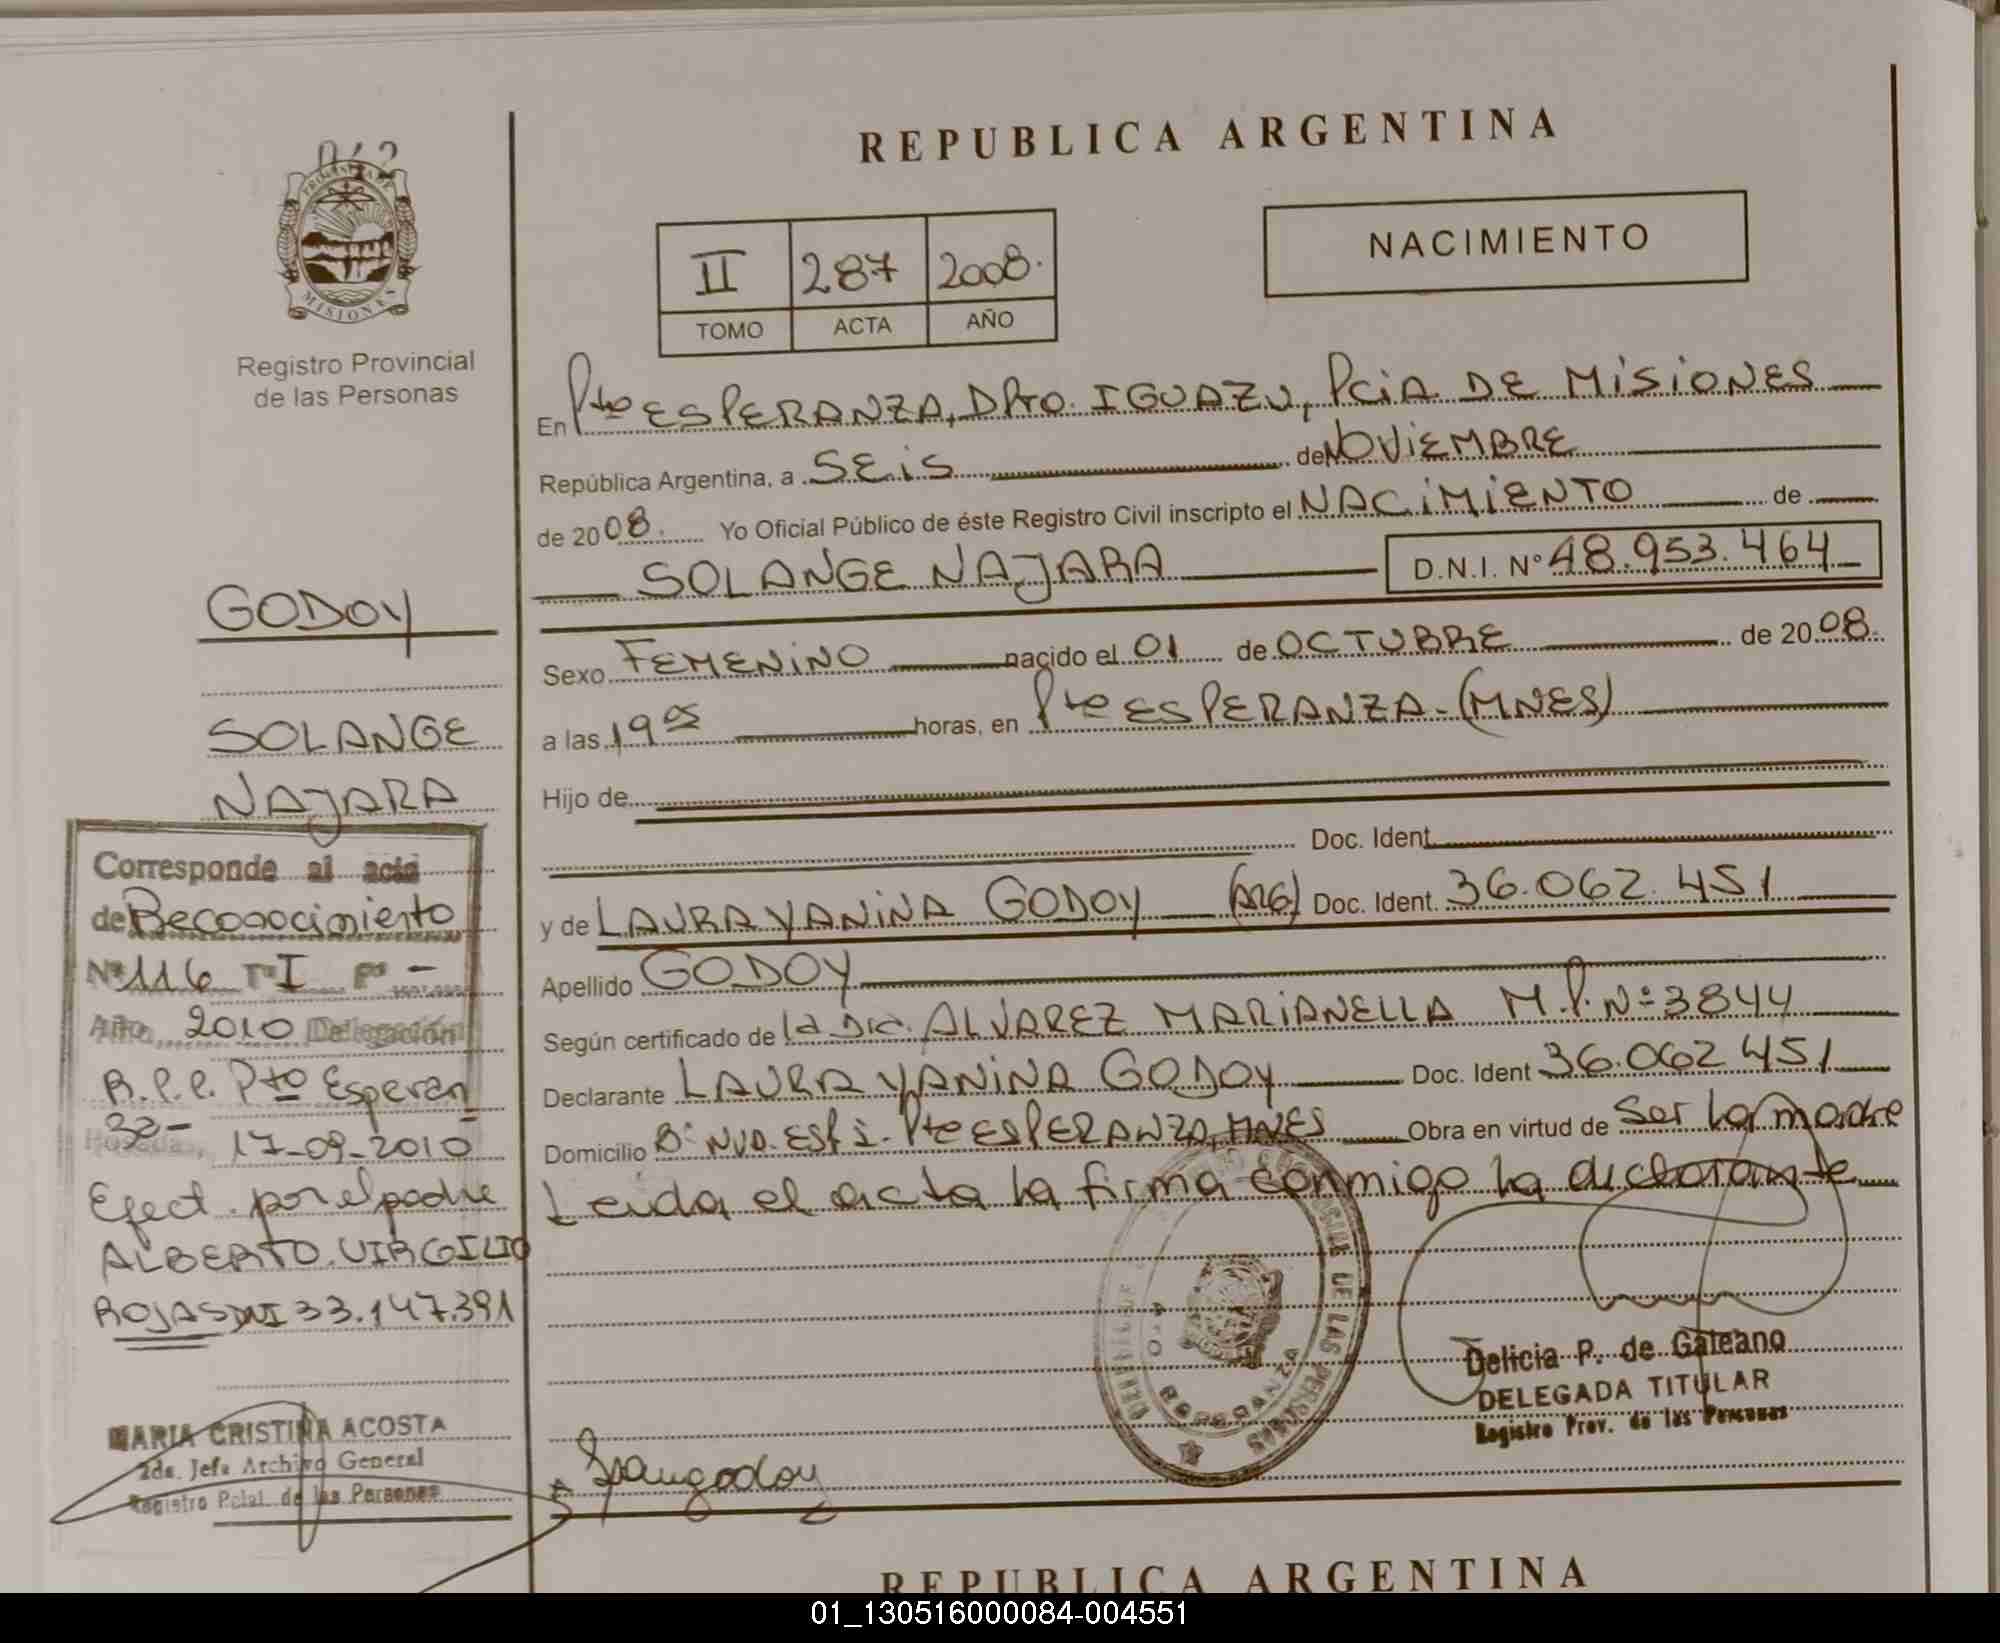 REPUBLICA ARGENTINA
PROVINCIA DE
MISIONES
Registro Provincial
de las Personas
II 287 2008.
TOMO ACTA AÑO
NACIMIENTO
En Pto ESPERANZA, DPTO. IGUAZU, PCIA DE MISIONES
República Argentina, a SEIS de NOVIEMBRE
de 2008. Yo Oficial Público de éste Registro Civil inscripto el NACIMIENTO de
SOLANGE NAJARA D.N.I. Nº 48.953.464
Sexo FEMENINO nacido el 01 de OCTUBRE de 2008.
a las 19 05 horas, en Pto ESPERANZA-(MNES)
Hijo de
Doc. Ident.
y de LAURA YANINA GODOY (ARG) Doc. Ident. 36.062.451
Apellido GODOY
Según certificado de la Dra. ALVAREZ MARIANELLA M.P.Nº3844
Declarante LAURA YANINA GODOY Doc. Ident 36.062 451
Domicilio Bº NVA. ESP. Pto ESPERANZA, MNES Obra en virtud de Ser la madre
Leída el acta la firma conmigo la declarante
GODOY
SOLANGE
NAJARA
Corresponde al acta
de Reconocimiento
Nº 116 Tº I Fº -
Año 2010 Delegación
R.P.P. Pto Esperan
za-
17-09-2010
Efect. por el padre
ALBERTO VIRGILIO
ROJAS DNI 33.147.391
MARIA CRISTINA ACOSTA
2da. Jefa Archivo General
Registro Pcial. de las Personas
DE LAS PERSONAS
Delicia P. de Galeano
DELEGADA TITULAR
Registro Prov. de las Personas
REPUBLICA ARGENTINA
01_130516000084-004551